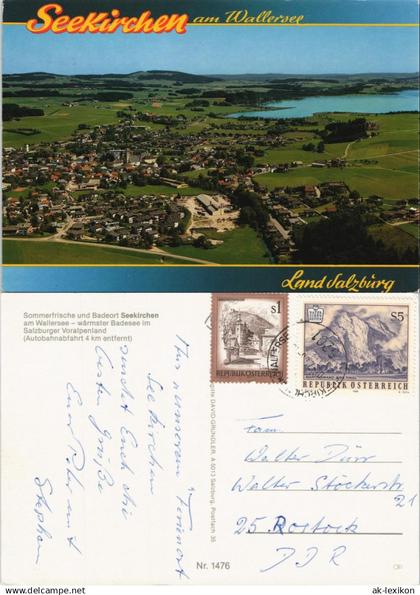 Seekirchen am Wallersee
Land Salzburg
Sommerfrische und Badeort Seekirchen
am Wallersee – wärmster Badesee im
Salzburger Voralpenland
(Autobahnabfahrt 4 km entfernt)
Aus unserem
Seekirchen
sendet Euch die
besten Grüße
Euer Peter mit
Stephan
Brigitte DAVID-GRÜNDLER, A 5013 Salzburg, Postfach 35
s1
REPUBLIK ÖSTERREICH
S5
REPUBLIK ÖSTERREICH
Fam.
Walter Dürr
Walter Stöckerstr.
21
25 Rostock
DDR
Nr. 1476
© ak-ansichtskarten.de